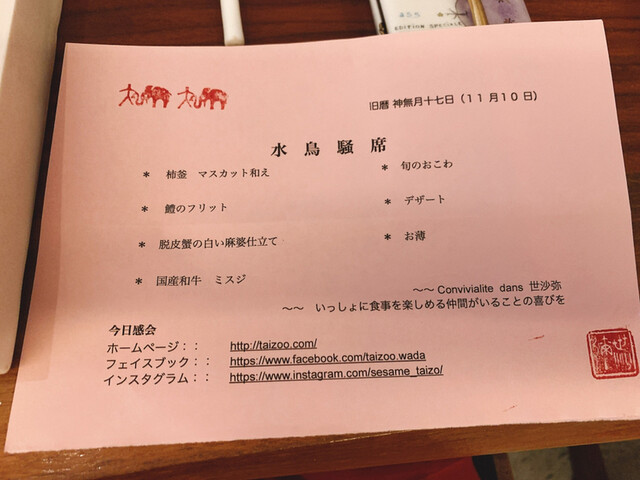 旧暦 神無月十七日（11月10日）
水鳥騒席
* 柿釜 マスカット和え
* 鱧のフリット
* 脱皮蟹の白い麻婆仕立て
* 国産和牛 ミスジ
* 旬のおこわ
* デザート
* お薄
～～ Convivialite dans 世沙弥
～～ いっしょに食事を楽しめる仲間がいることの喜びを
今日感会
ホームページ：： http://taizoo.com/
フェイスブック：： https://www.facebook.com/taizoo.wada
インスタグラム：： https://www.instagram.com/sesame_taizo/